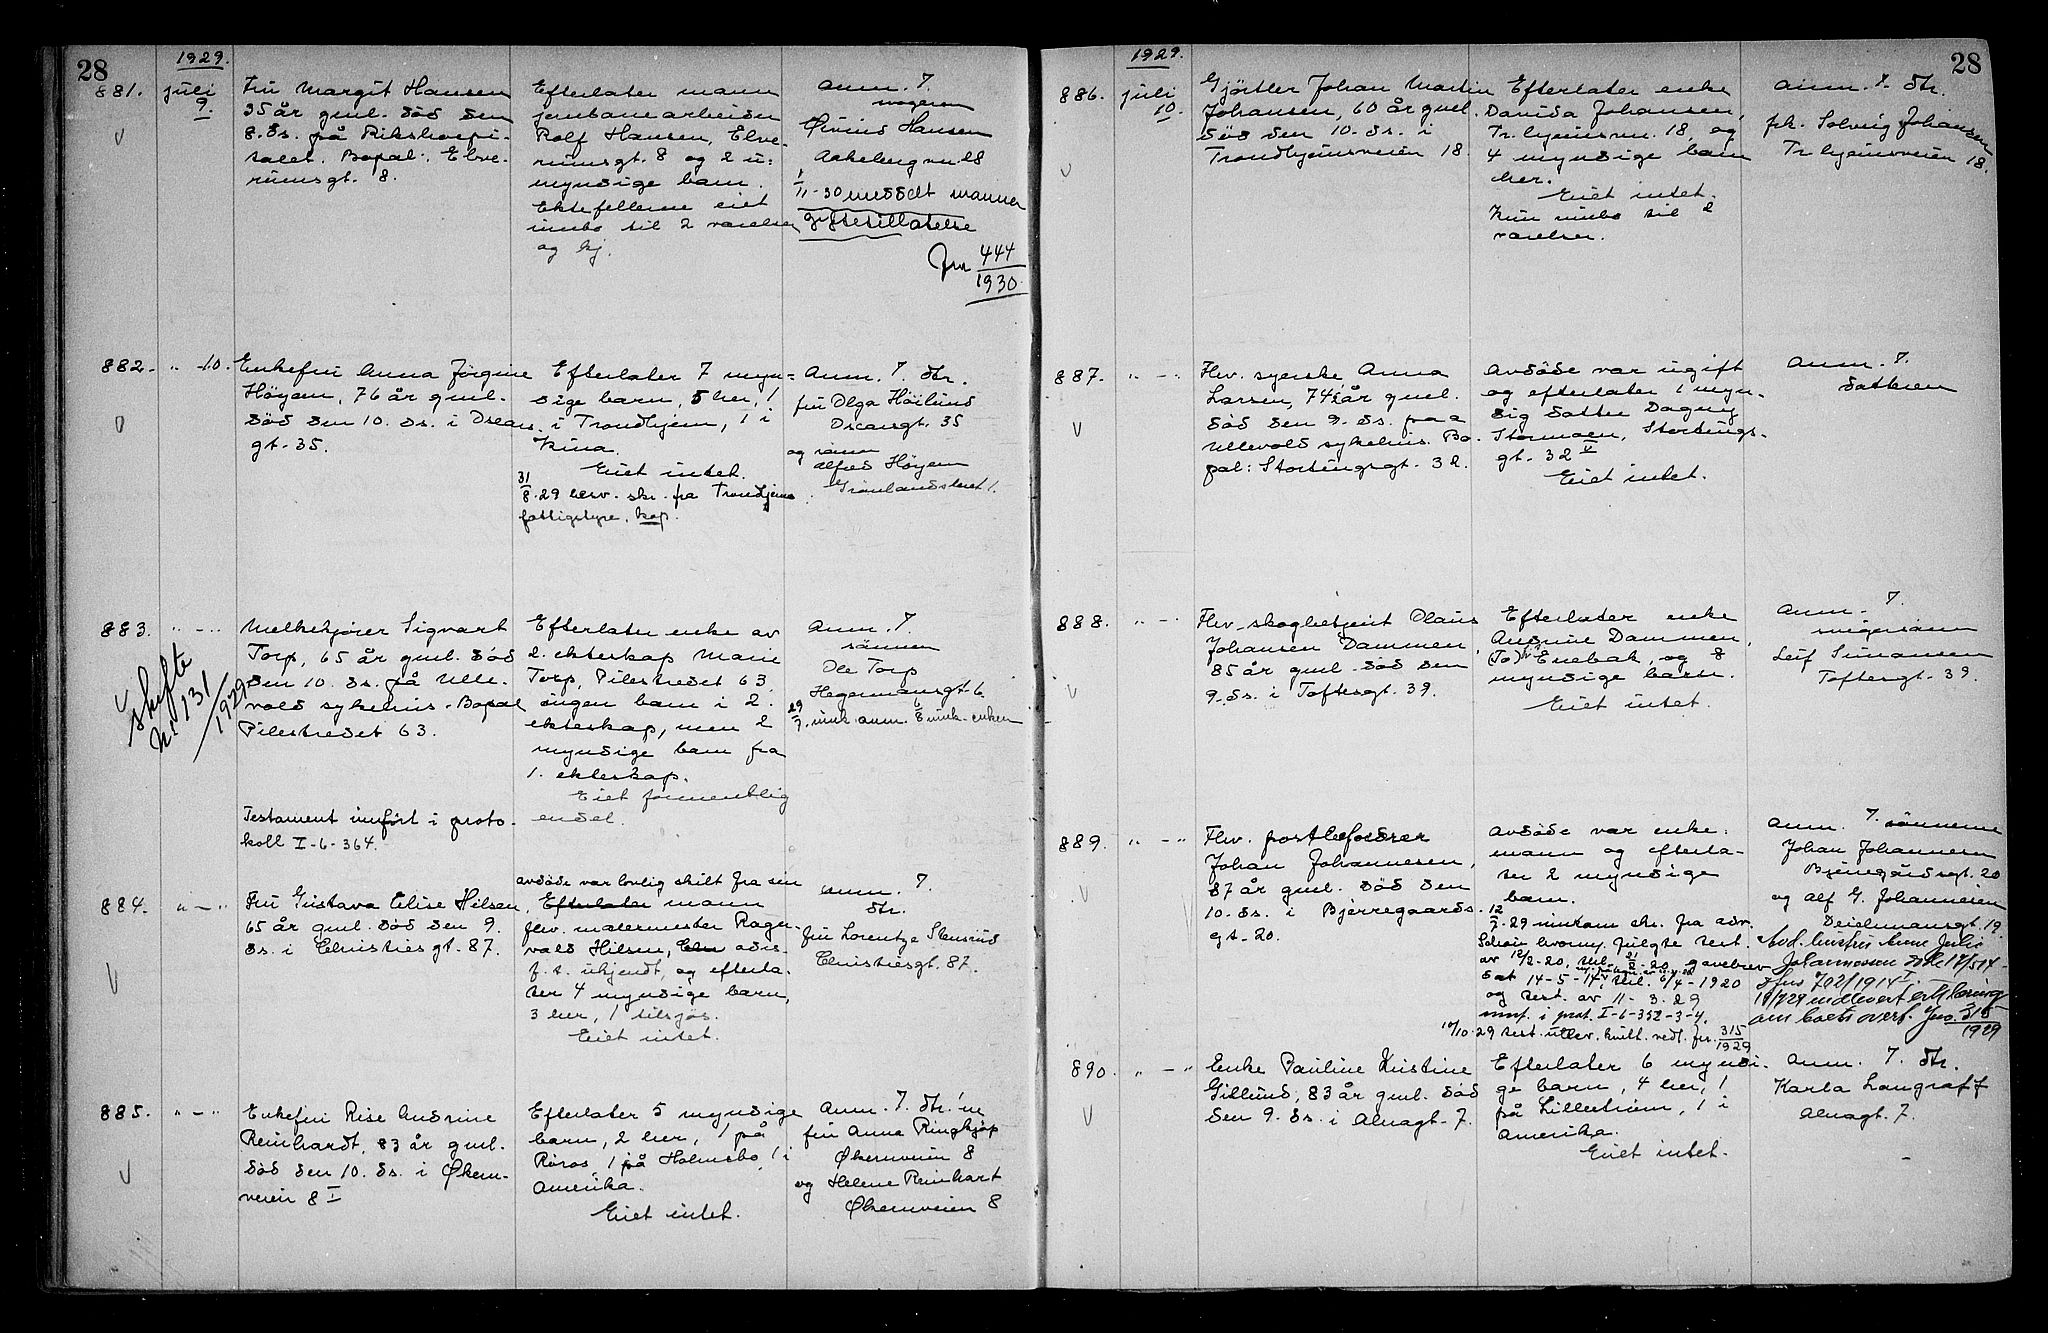 28
1929.
881.
juli
9.
Fru Margit Hansen
35 år gml. död den
8. ds. på Rikshospi-
talet. Bopæl: Elve-
rumsgt. 8.
Efterlater mann
jernbanearbeider
Rolf Hansen, Elve-
rumsgt. 8 og 2 u=
myndige barn.
Ektefellerne eiet
innbo til 2 værelser
og kj.
Anm. 7.
svogeren
Øivind Hansen
Aakebergvn. 28
1/11-30 meddelt mannen
giftetillatelse
Jnr 444/1930.
882.
" -10.
Enkefru Anna Jörgine
Höyem, 76 år gml.
död den 10. ds. i Oscars-
gt. 35.
Efterlater 7 myn=
dige barn, 5 her, 1
i Trondhjem, 1 i
Kina.
Eiet intet.
31/8-29 herv. skr. fra Trondhjems
fattigstyre, kap.
Anm. 7. dtr.
fru Olga Höilund
Oscarsgt. 35
og sönn
Alfred Höyem
Grönlandsleret 1.
883.
" - "
Skifte
nr 131/1929
Melkekjører Sigvart
Torp, 65 år gml. död
den 10. ds. på Ulle-
vold sykehus. Bopæl
Pilestredet 63.
Testament innfört i proto-
koll I-6-364.
Efterlater enke av
2. ekteskap Marie
Torp, Pilestredet 63,
ingen barn i 2.
ekteskap, men 2
myndige barn fra
1. ekteskap.
Eiet formentlig
endel.
Anm. 7.
sönnen
Ole Torp
Hegermannsgt. 6
29/7. innk. anm. 6/8 innk. enken
884.
" - "
Fru Gustava Elise Hilsen,
65 år gml. död den 9.
ds. i Christiesgt. 87.
Avdöde var lovlig skilt fra sin
Efterlater mann
fhv. malermester Ragn-
vald Hilsen, adr.
f. t. ukjendt, og efterla-
ter 4 myndige barn,
3 her, 1 tilsjøs.
Eiet intet.
Anm. 7.
dtr.
fru Lorentze Stensrud
Christiesgt. 87.
885.
" - "
Enkefru Rise Andrine
Reinhardt, 83 år gml.
död den 10. ds. i Økern-
veien 8 I
Efterlater 5 myndige
barn, 2 her, 1 på
Röros, 1 på Holmsbo, 1 i
Amerika.
Eiet intet.
Anm. 7. dtr.'ne
fru Anna Ringkjøp
Økernveien 8
og Helene Reinhart
Økernveien 8
28
1929.
886.
juli
10.
Gjörtler Johan Martin
Johansen, 60 år gml.
död den 10. ds. i
Trondhjemsveien 18.
Efterlater enke
Davida Johansen,
Tr.hjemsvn. 18, og
4 myndige barn
her.
Eiet intet.
Kun innbo til 2
værelser.
Anm. 7. dtr.
frk. Solveig Johansen
Tr.hjemsveien 18.
887.
" - "
Fhv. syerske Anna
Larsen, 74½ år gml.
död den 9. ds. paa
Ullevold sykehus. Bo-
pæl: Stortingsgt. 32.
Avdöde var ugift
og efterlater 1 myn-
dig datter Dagny
Stormoen, Stortings-
gt. 32 V
Eiet intet.
Anm. 7.
datteren
888.
" - "
Fhv. skogbetjent Olaus
Johansen Dammen,
85 år gml. död den
9. ds. i Toftesgt. 39.
Efterlater enke
Augine Dammen,
Enebak, og 8
myndige barn.
Eiet intet.
Anm. 7.
svigersönn
Leif Simonsen
Toftesgt. 39.
889.
" - "
Fhv. postbefordrer
Johan Johannesen,
87 år gml. död den
10. ds. i Bjerregaards-
gt. 20.
Avdöde var enke=
mann og efterla-
ter 2 myndige
barn.
12/7-29 innkom skr. fra adv.
av 12/2-20, 21/2-20 gavebrev
dat 14-5-14, 6/4-1920
og test. av 11-3-29
innf. i prot. I-6-352-3-4.
10/10-29 test. utlev. kvitt. vedl. jnr. 315/1929
Anm. 7. sönnerne
Johan Johannesen
Bjerregårdsgt. 20
og Alf G. Johannesen
Deichmansgt. 19.
Avd. hustru Anne Julie
Johannesen död 17/5 14-
Jnr 702/1914 I.
19/7 29 innlevert erklæring
om boets overt. Jnr. 315/1929
890.
" - "
Enke Pauline Kristine
Gillund, 83 år gml. död
den 9. ds. i Alnagt. 7.
Efterlater 6 myndi-
ge barn, 4 her, 1
på Lilleström, 1 i
Amerika.
Eiet intet.
Anm. 7. dtr.
Karla Langraff
Alnagt. 7.